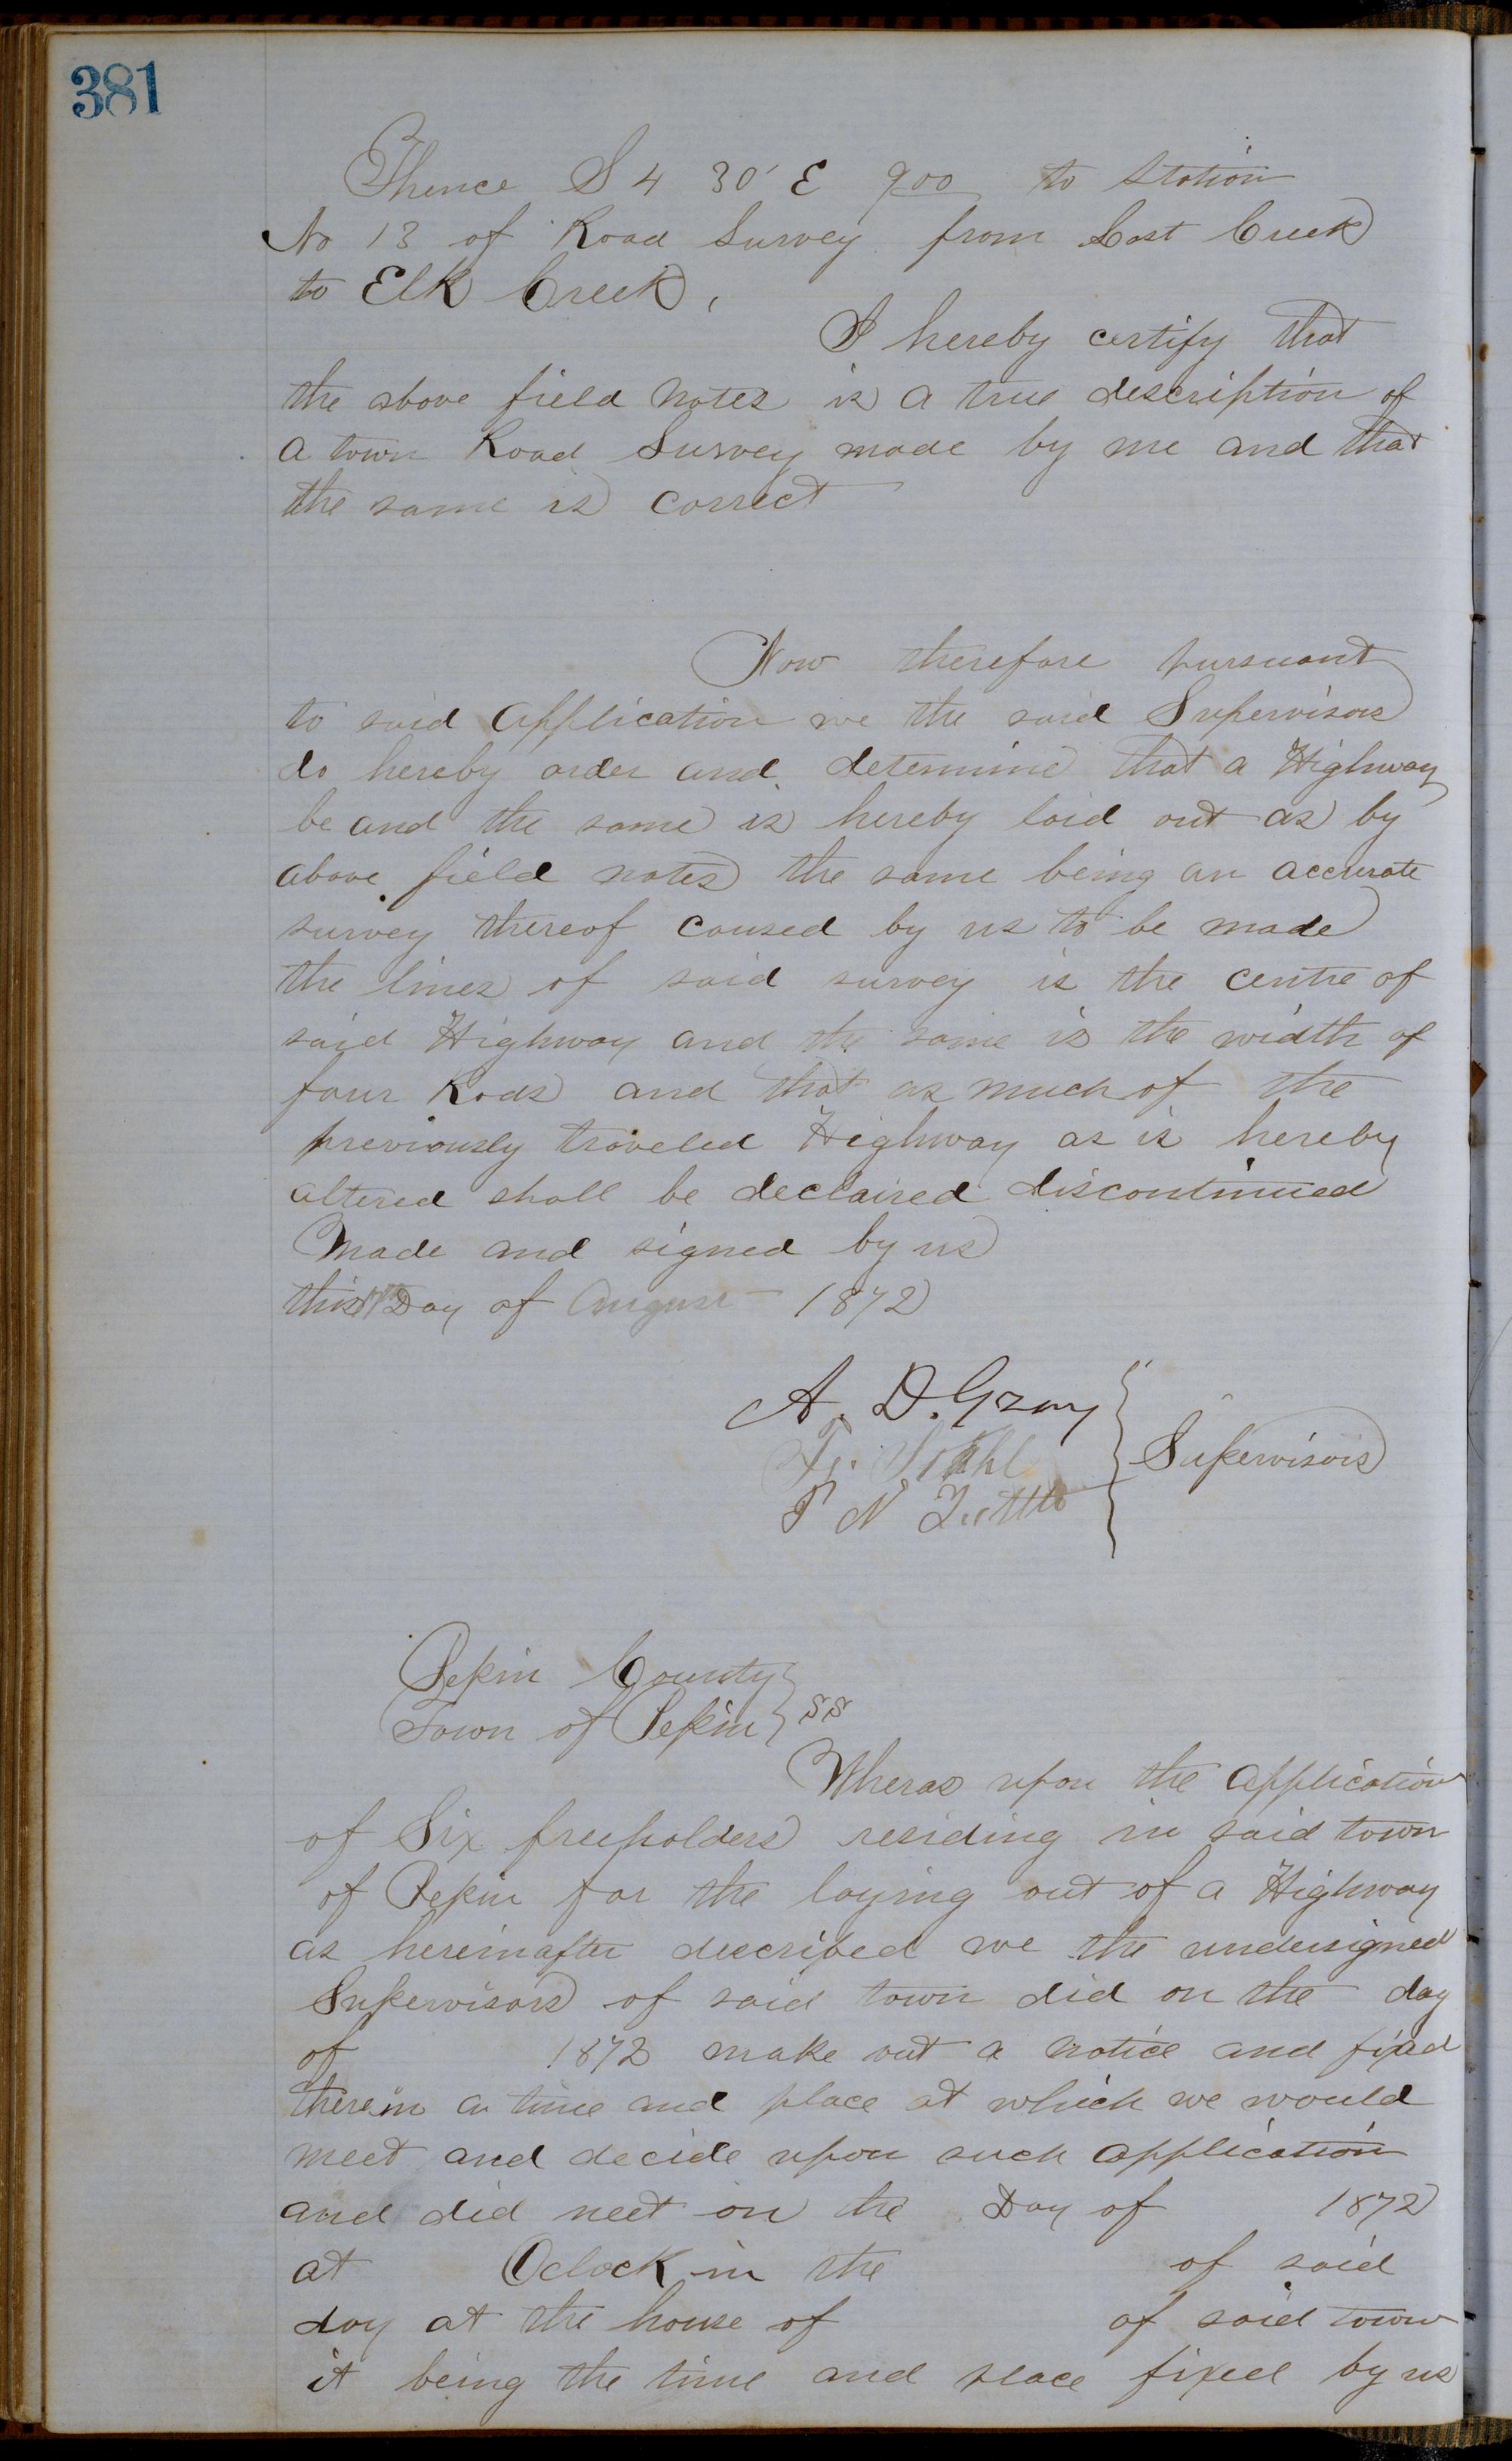 381
Thence S 4 30' E 900 to Station
No 13 of Road Survey from Lost Creek
to Elk Creek,
I hereby certify that
the above field notes is a true description of
a town Road Survey made by me and that
the same is correct
Now therefore pursuant
to said Application we the said Supervisors
do hereby order and determine that a Highway
be and the same is hereby laid out as by
above field notes the same being an accurate
survey thereof caused by us to be made
the lines of said survey is the centre of
said Highway and the same is the width of
four Rods and that as much of the
previously traveled Highway as is hereby
altered shall be declaired discontinued
Made and signed by us
this Day of August 1872
A. D. Gray
Stahl
Supervisors
P N Tuttle
Pepin County
Town of Pepin } SS
Wheras upon the Application
of Six freeholders residing in said town
of Pepin for the laying out of a Highway
as hereinafter descriped we the undersigned
Supervisors of said town did on the day
of 1872 make out a notice and fixad
therein a time and place at which we would
meet and decide upon such application
and did meet on the Day of 1872
at Oclock in the of said
day at the house of of said town
it being the time and place fixed by us